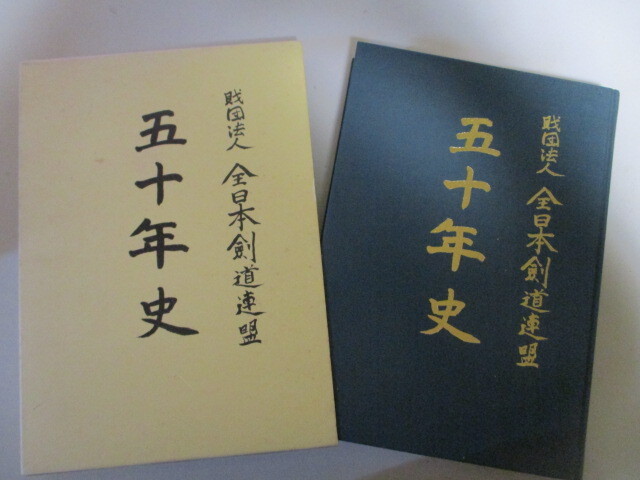 財団法人 全日本剣道連盟
五十年史
財団法人 全日本剣道連盟
五十年史